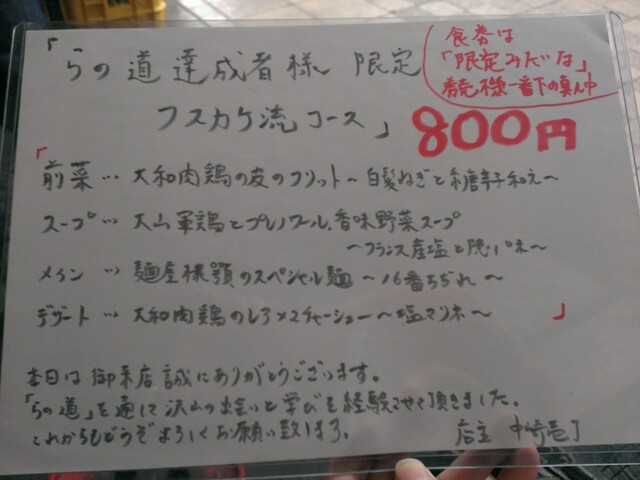 「らの道達成者様 限定
フスカケ流コース」
食券は
「限定みだいな」
券売様一番下の真ん中
800円
「前菜… 大和肉鶏の皮のフリット〜白髪ねぎと糖辛子和え〜
スープ… 大山軍鶏とプレノワール、香味野菜スープ
〜フランス産塩と隠し味〜
メイン … 麺屋様顎のスペシャル麺 〜16番ちぢれ〜
デザート… 大和肉鶏のレアメスチャーシュー〜塩マリネ〜」
本日は御来店誠にありがとうございます。
「らの道」を通して沢山の出会いと学びを経験させて頂きました。
これからもどうぞよろしくお願い致します。
店主 中崎壱丁